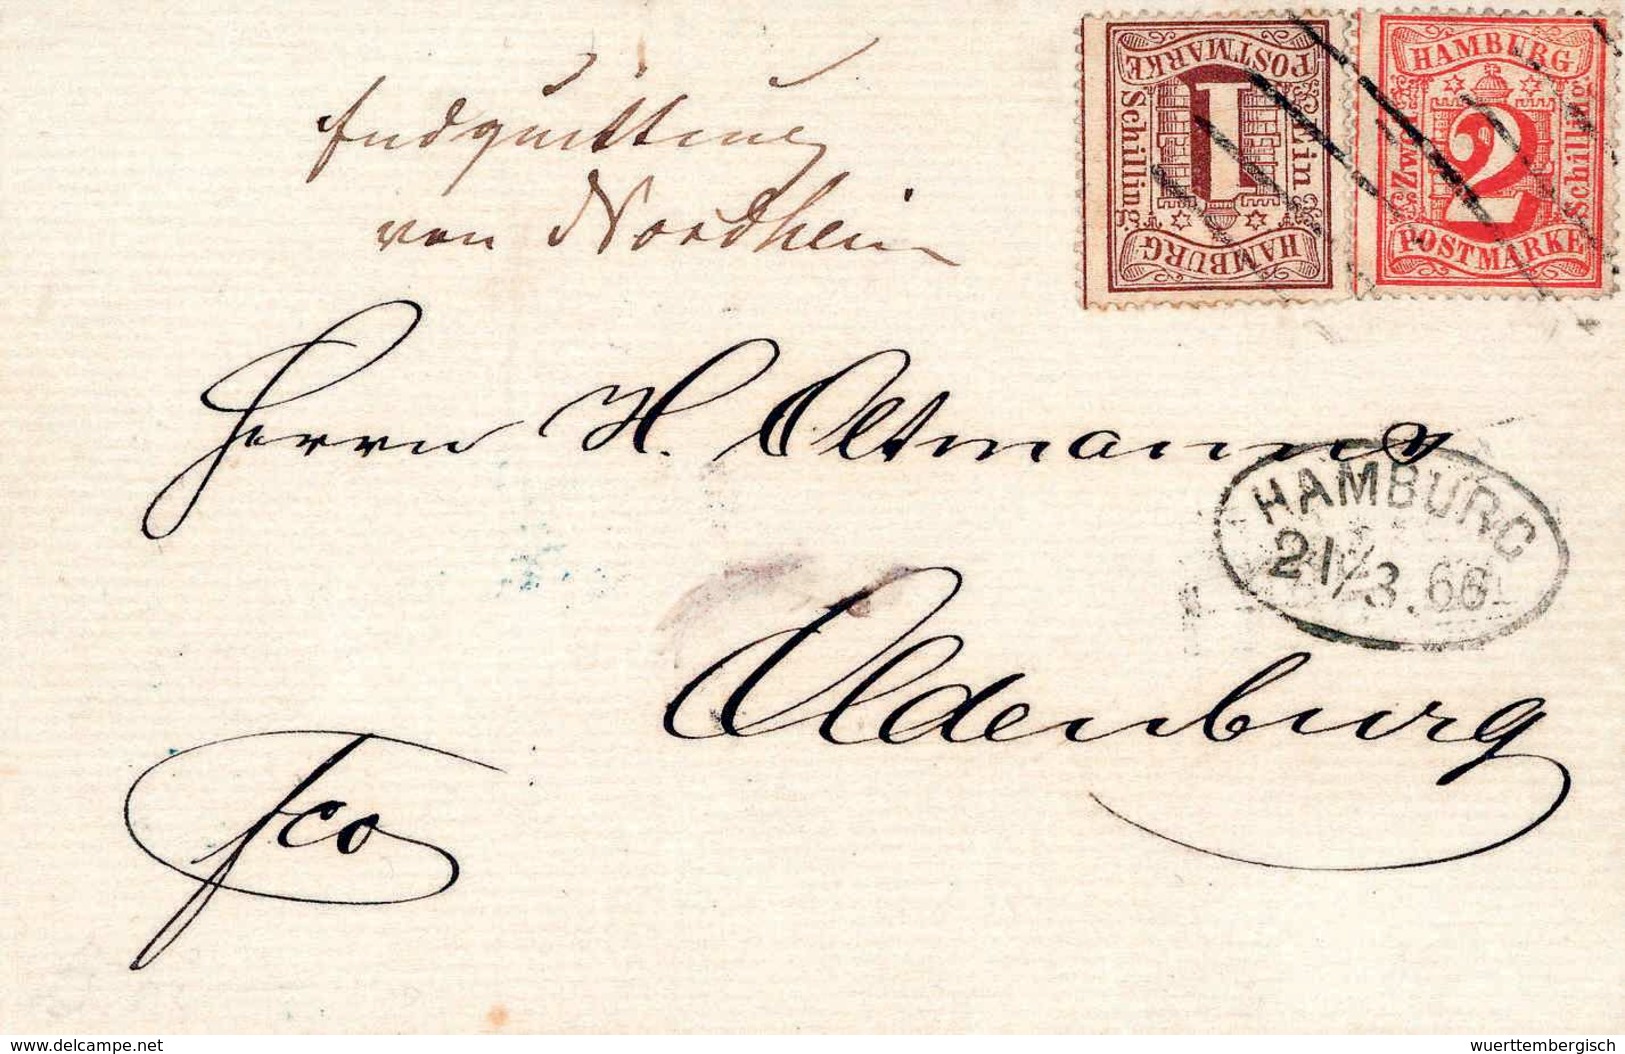 Endquittung
von Nordheim
POSTMARKE
Ein
Schilling
HAMBURG
1
HAMBURG
Zwei
Schilling
2
POSTMARKE
Herrn H. Oltmanns
HAMBURG
21/3.66
Oldenburg
fco
www.delcampe.net
wuerttembergisch